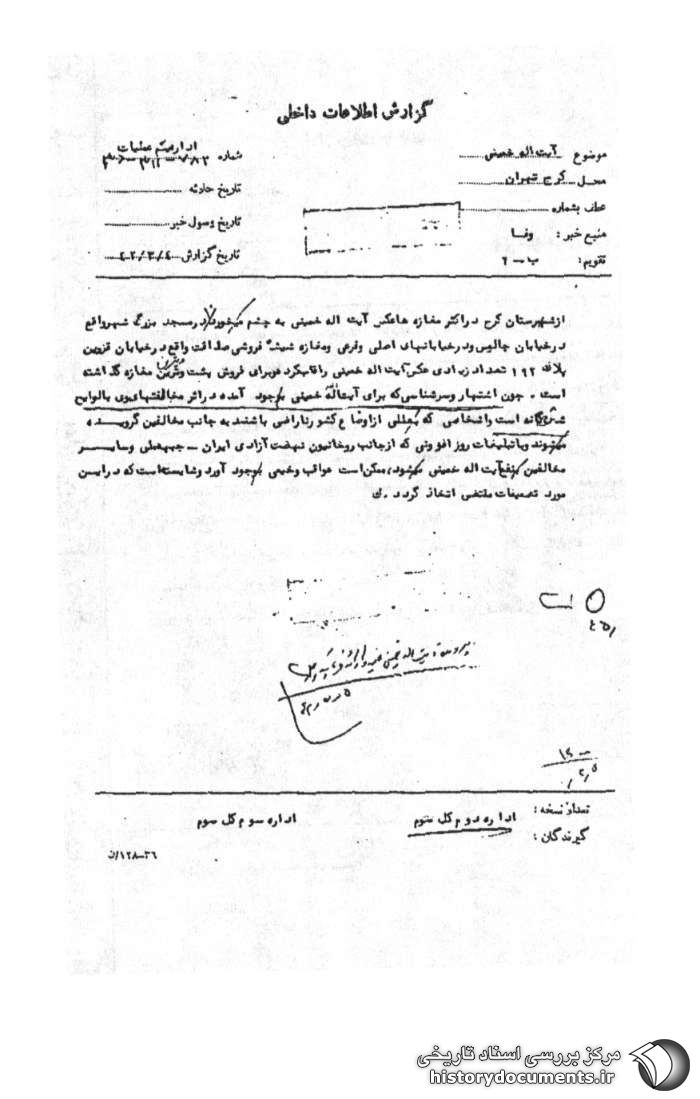 گزارش اطلاعات داخلی
موضوع آیت اله خمینی
محل کرج تهران
عطف بشماره
منبع خبر : وفا
تقویم: ب - ۲
اداره عملیات
شماره
تاریخ حادثه
تاریخ وصول خبر
تاریخ گزارش
ازشهرستان کرج دراکثر مغازه هاعکس آیت اله خمینی به چشم میخورد درمسجد بزرگ شهرواقع
درخیابان چالوس ودرخیابانهای اصلی وفرعی ومغازه شیشه فروشی صداقت واقع درخیابان قزوین
پلاک ۱۹۲ تعداد زیادی عکس آیت اله خمینی راقاب کرده وبرای فروش پشت ویترین مغازه گذاشته
است . چون اشتهار وسرشناسی که برای آیت اله خمینی بوجود آمده دراثر مخالفتهای وی بالوایح
ششگانه است واشخاصی که بعللی ازاوضاع کشورناراضی باشند به جانب مخالفین گرویده
میشوند وباتبلیغات روز افزونی که ازجانب روحانیون نهضت آزادی ایران - جبهه ملی وسایر
مخالفین بنفع آیت اله خمینی میشود، ممکن است عواقب وخیمی بوجود آورد وشایسته است که دراین
مورد تصمیمات مقتضی اتخاذ گردد .ک
تعداد نسخه :
گیرندگان :
اداره دوم کل سوم
اداره سوم کل سوم
۳۶-۱۲۸/ن
مرکز بررسی اسناد تاریخی
historydocuments.ir